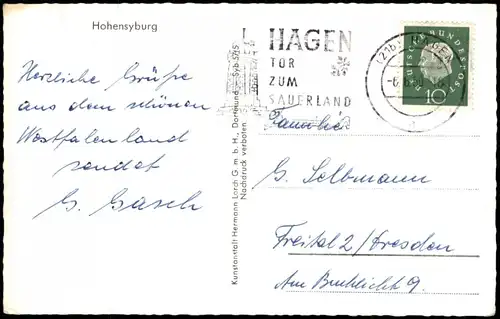 Hohensyburg
Herzliche Grüße
aus dem schönen
Westfalenland
sendet
G. Gasch
Kunstanstalt Hermann Lorch G. m. b. H., Dortmund - Syb 5/15
Nachdruck verboten
HAGEN
TOR
ZUM
SAUERLAND
(21b) HAGEN
DEUTSCHE BUNDESPOST
10
G. Selbmann
Freital 2 / Dresden
Am 9.